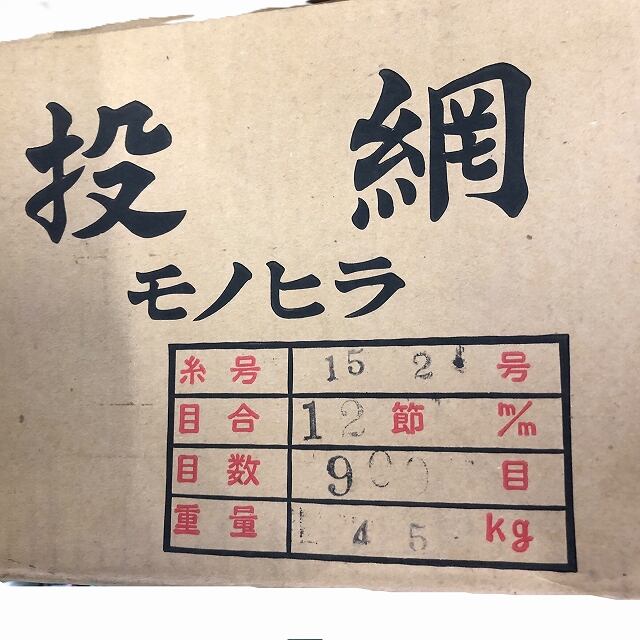 投網
モノヒラ
糸号 15 2 号
目合 12 節 m/m
目数 900 目
重量 45 kg